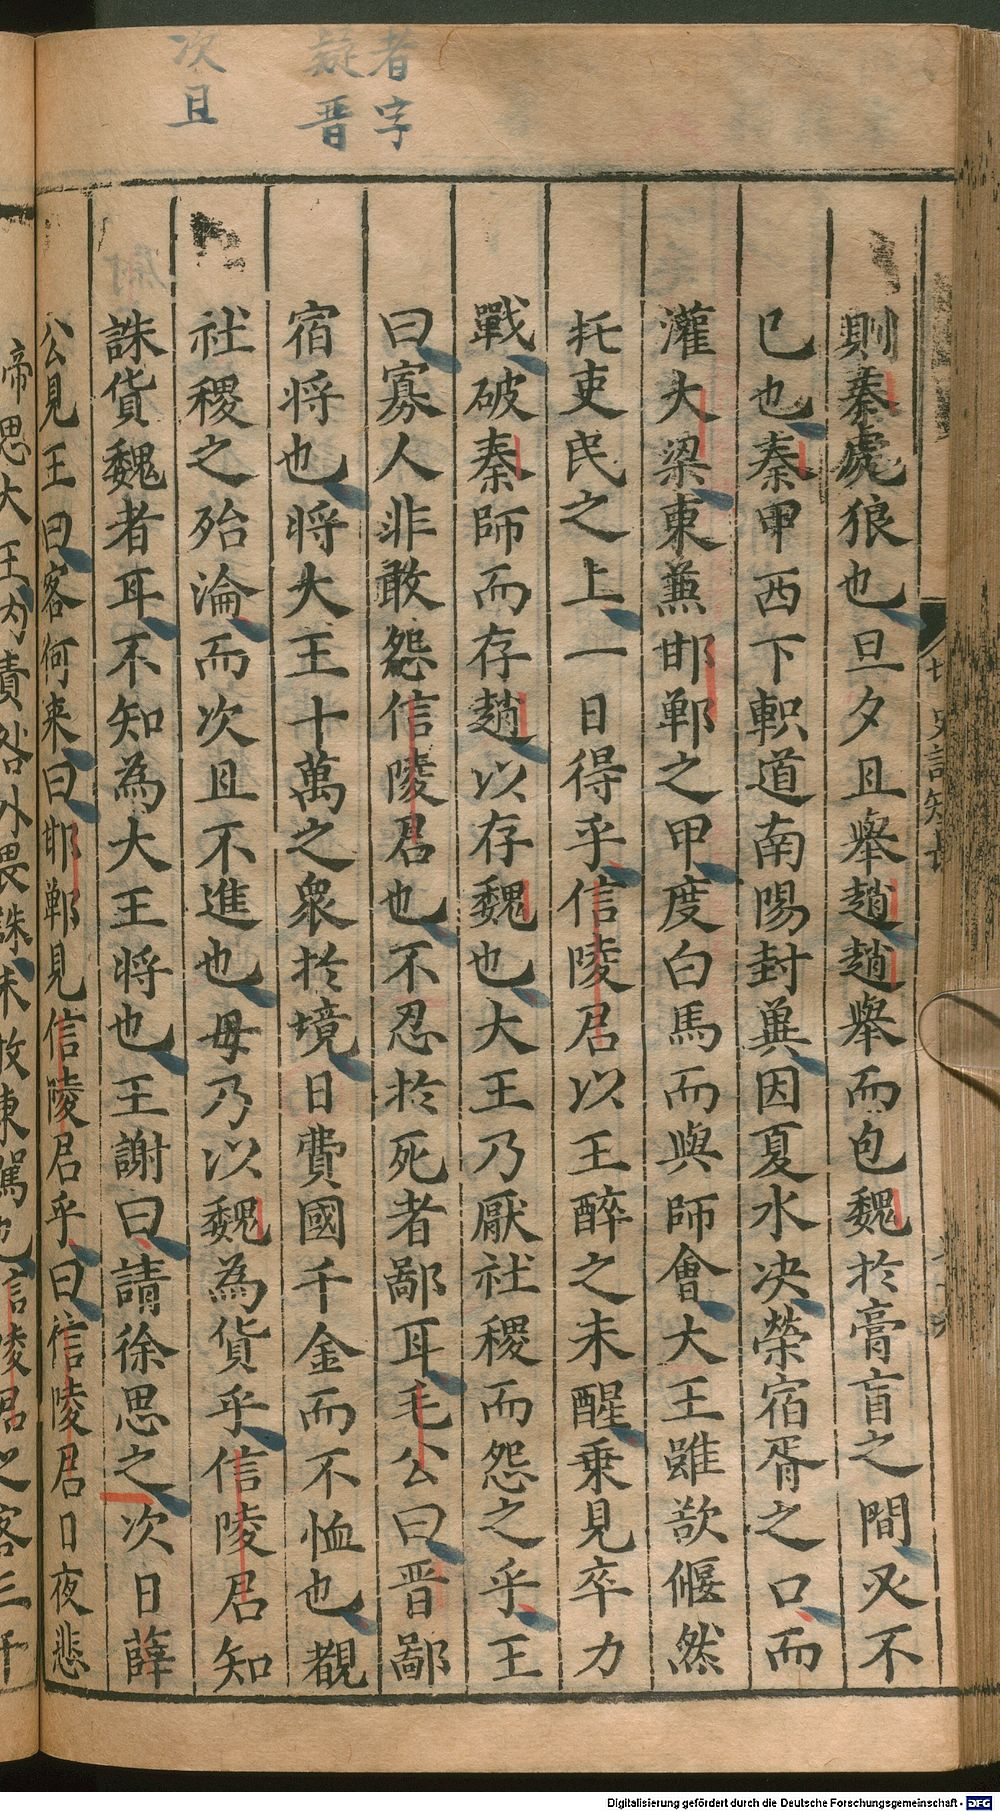 者字
疑晋
次且
則秦虎狼也旦夕且舉趙趙舉而包魏於膏盲之間又不
已也秦甲西下軹道南陽封冀因夏水決滎宿胥之口而
灌大梁東蕪邯鄲之甲度白馬而與師會大王雖欲偃然
托吏民之上一日得乎信陵君以王醉之未醒乗見卒力
戰破秦師而存趙以存魏也大王乃厭社稷而怨之乎王
曰寡人非敢怨信陵君也不忍於死者鄙耳毛公曰晋鄙
宿将也将大王十萬之衆於境日費國千金而不恤也覩
社稷之殆淪而次且不進也毋乃以魏為貨乎信陵君知
誅貨魏者耳不知為大王将也王謝曰請徐思之次日薛
公見王曰客何来曰邯鄲見信陵君乎曰信陵君日夜悲
啼思大王内責咎外畏誅未敢東駕也信陵君之客三千
史記短長
Digitalisierung gefördert durch die Deutsche Forschungsgemeinschaft - DFG